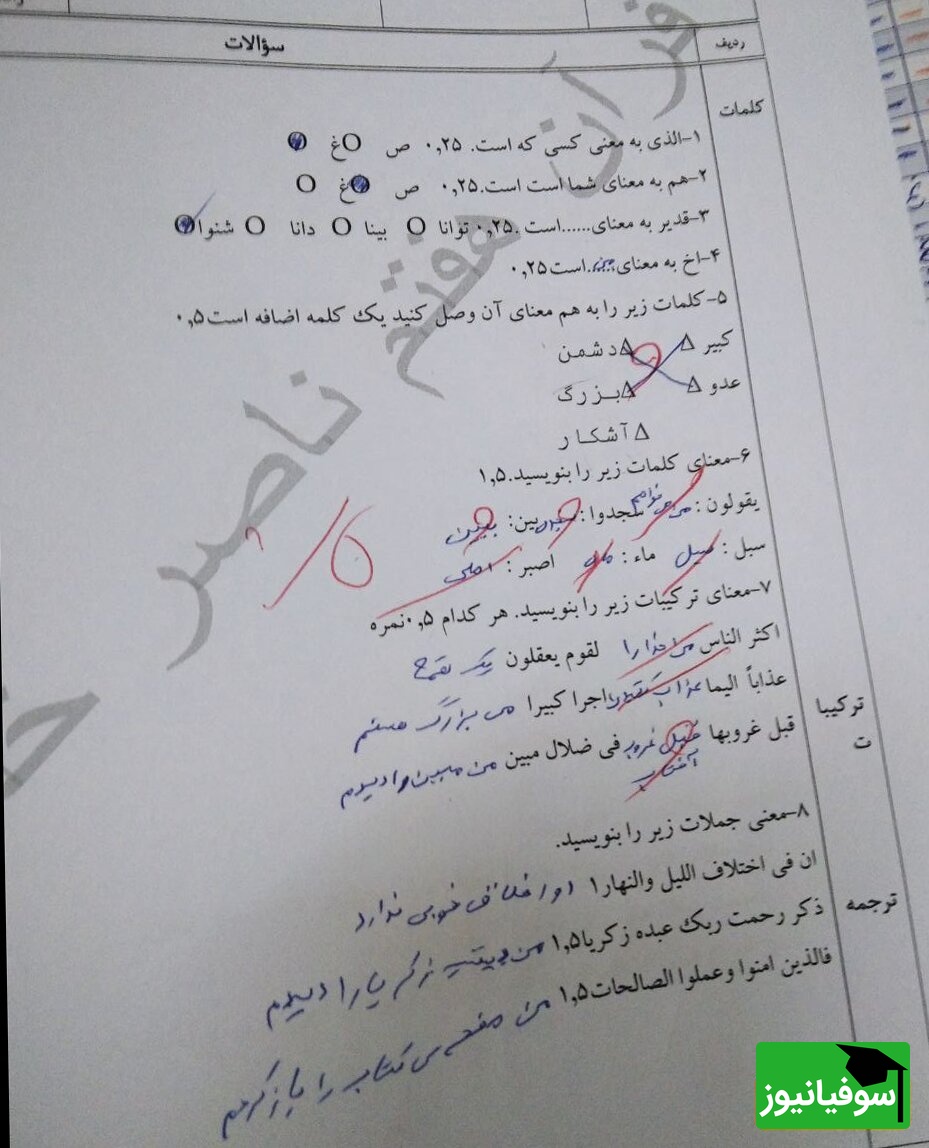 ردیف سؤالات
کلمات
۱-الذی به معنی کسی که است. ۰,۲۵ ص غ
۲-هم به معنای شما است است.۰,۲۵ ص غ
۳-قدیر به معنای......است .۰,۲۵ توانا بینا دانا شنوا
۴-اخ به معنای است۰,۲۵
۵-کلمات زیر را به هم معنای آن وصل کنید یک کلمه اضافه است۰,۵
کبیر دشمن
عدو بزرگ
آشکار
۶-معنای کلمات زیر را بنویسید.۱,۵
یقولون: می خواهم سجدوا: بین: ببین
سبل: سیل ماء: ماه اصبر: اصلی
۷-معنای ترکیبات زیر را بنویسید. هر کدام ۰,۵نمره
ترکیبات
اکثر الناس لقوم یعقلون یک
عذاباً الیما عذاب اجرا کبیرا من بزرگ هستم
قبل غروبها قبل غروب آفتاب فی ضلال مبین من مبین را دیدم
۸-معنی جملات زیر را بنویسید.
ترجمه
ان فی اختلاف اللیل والنهار۱ او اخلاق خوبی ندارد
ذکر رحمت ربک عبده زکریا۱,۵ من زکریا را دیدم
فالذین امنوا وعملوا الصالحات۱,۵ من صفحه ی کتاب را باز کردم
قرآن هفتم ناصر
سوفیانیوز